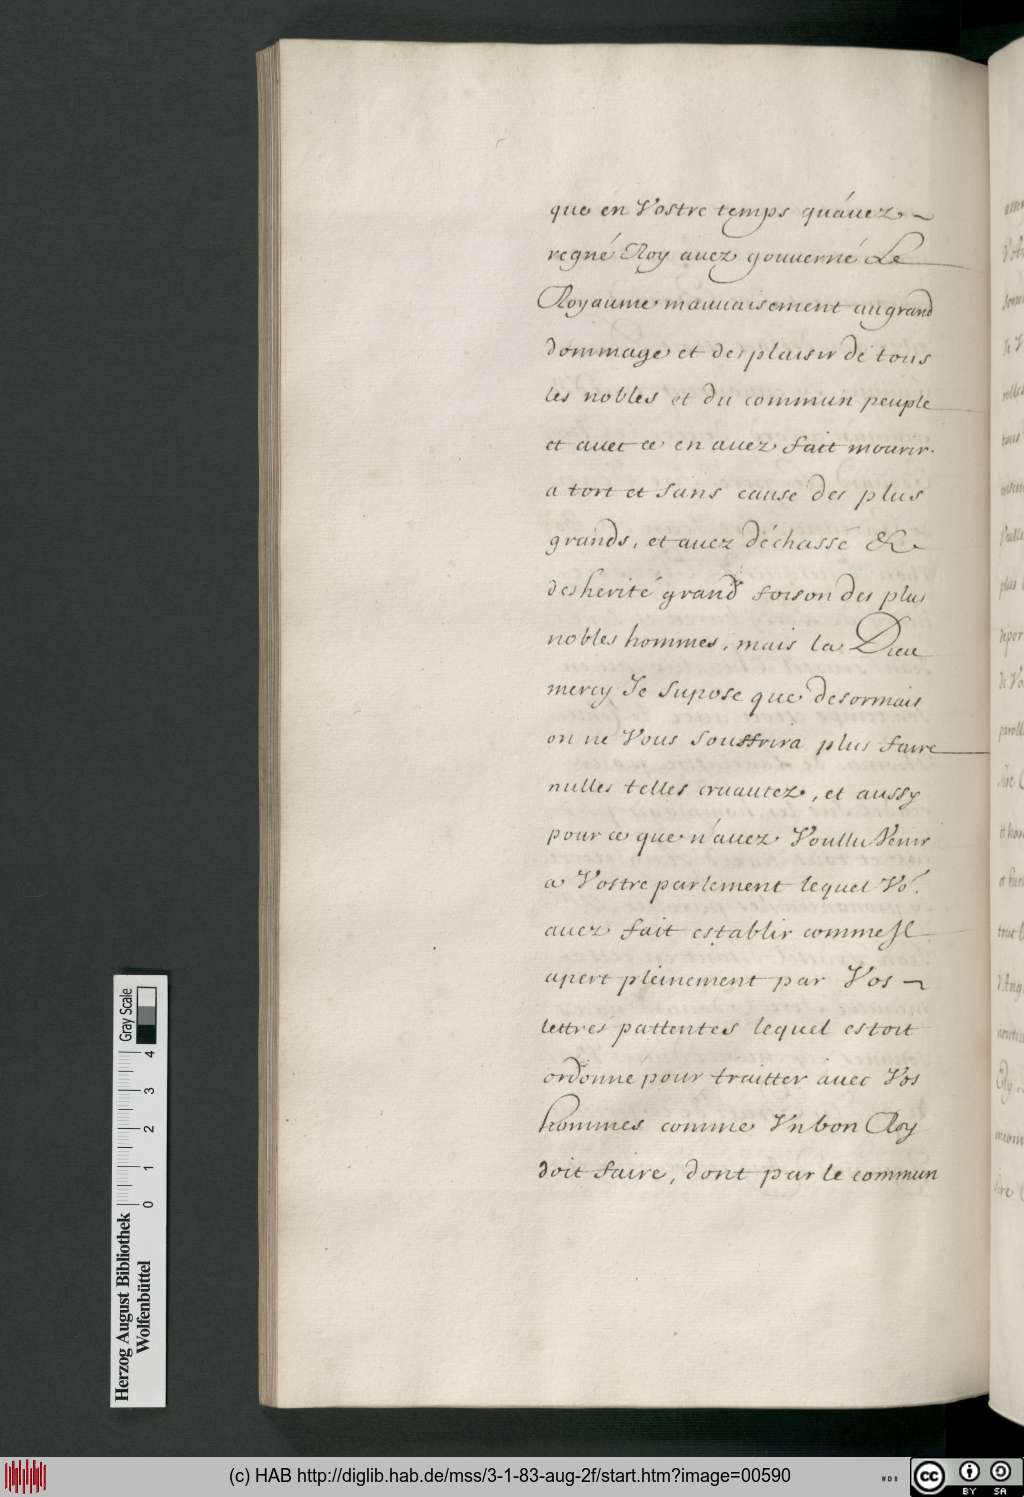 que en Vostre temps qu'auez
regné Roy auez gouuerné Le
Royaume mauuaisement au grand
dommage et desplaisir de tous
les nobles et du commun peuple
et auec ce en auez fait mourir
a tort et sans cause des plus
grands, et auez déchassé &
desherité grand foison des plus
nobles hommes, mais la Dieu
mercy Je supose que desormais
on ne Vous souffrira plus faire
nulles telles cruautez, et aussy
pour ce que n'auez Voullu Venir
a Vostre parlement lequel Vo.
auez fait establir comme Il
apert pleinement par Vos
lettres pattentes lequel estoit
ordonne pour traitter auec Vos
hommes comme Vn bon Roy
doit faire, dont par le commun
Herzog August Bibliothek
Wolfenbüttel
0 1 2 3 4
Gray Scale
(c) HAB http://diglib.hab.de/mss/3-1-83-aug-2f/start.htm?image=00590
WDB
cc BY SA